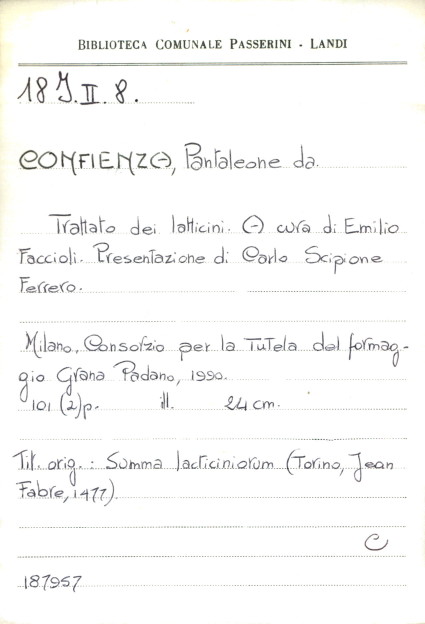 BIBLIOTECA COMUNALE PASSERINI - LANDI
18 J. II. 8.
CONFIENZA, Pantaleone da.
Trattato dei latticini. A cura di Emilio
Faccioli. Presentazione di Carlo Scipione
Ferrero.
Milano, Consorzio per la Tutela del formag-
gio Grana Padano, 1990.
101 (2)p. ill. 24 cm.
Tit. orig.: Summa lacticiniorum (Torino, Jean
Fabre, 1477).
C
187957